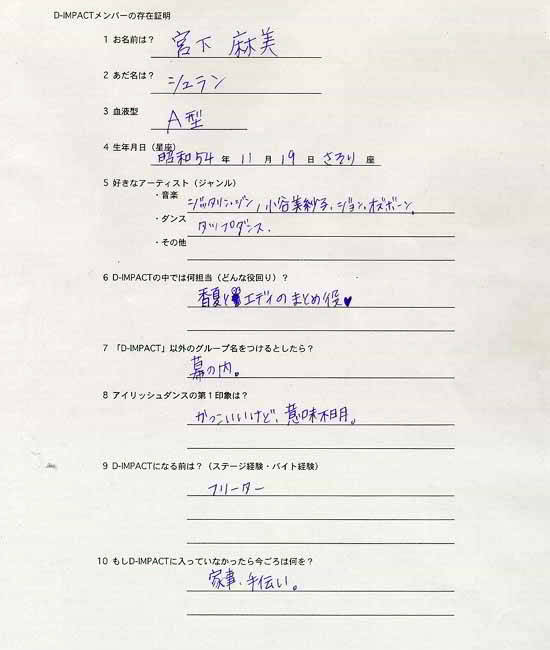 D-IMPACTメンバーの存在証明
1 お名前は? 宮下 麻美
2 あだ名は? シュラン
3 血液型 A型
4 生年月日(星座) 昭和54 年 11 月 19 日 さそり 座
5 好きなアーティスト(ジャンル)
・音楽 ジッタリン・ジン, 小谷美紗子、ジョン・オズボーン。
・ダンス タップダンス.
・その他
6 D-IMPACTの中では何担当(どんな役回り)?
香夏と エディのまとめ役♥
7 「D-IMPACT」以外のグループ名をつけるとしたら?
幕の内。
8 アイリッシュダンスの第1印象は?
かっこいいけど、意味不明。
9 D-IMPACTになる前は?(ステージ経験・バイト経験)
フリーター
10 もしD-IMPACTに入っていなかったら今ごろは何を?
家事、手伝い。